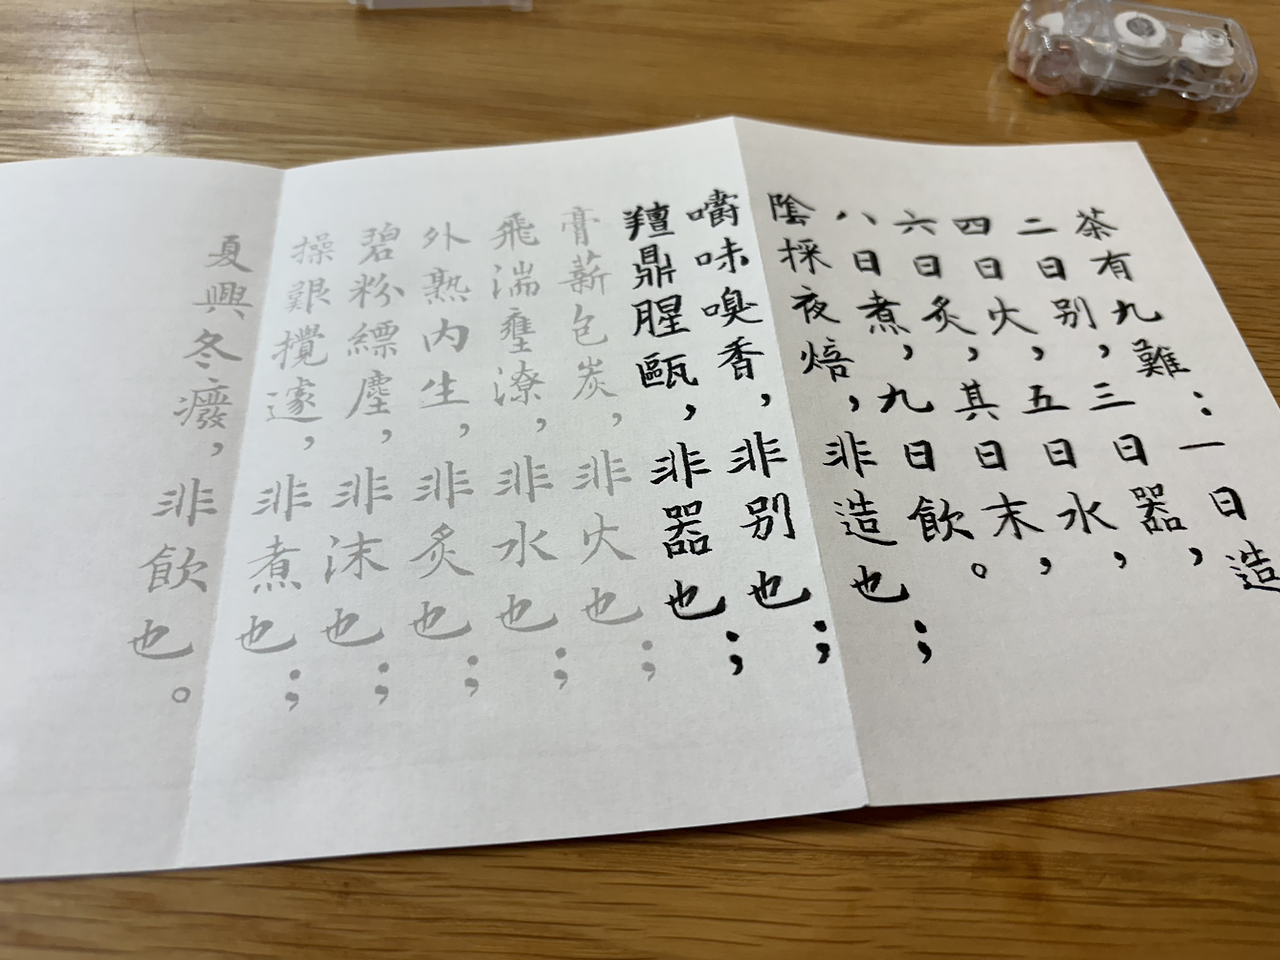 茶有九難：一日造
二日别，三日器，
四日火，五日水，
六日炙，其日末，
八日煮，九日飲。
陰採夜焙，非造也；
嚼味嗅香，非别也；
羶鼎腥甌，非器也；
膏薪包炭，非火也；
飛湍壅潦，非水也；
外熟内生，非炙也；
碧粉縹塵，非沫也；
操艱攪遽，非煮也；
夏興冬癈，非飲也。